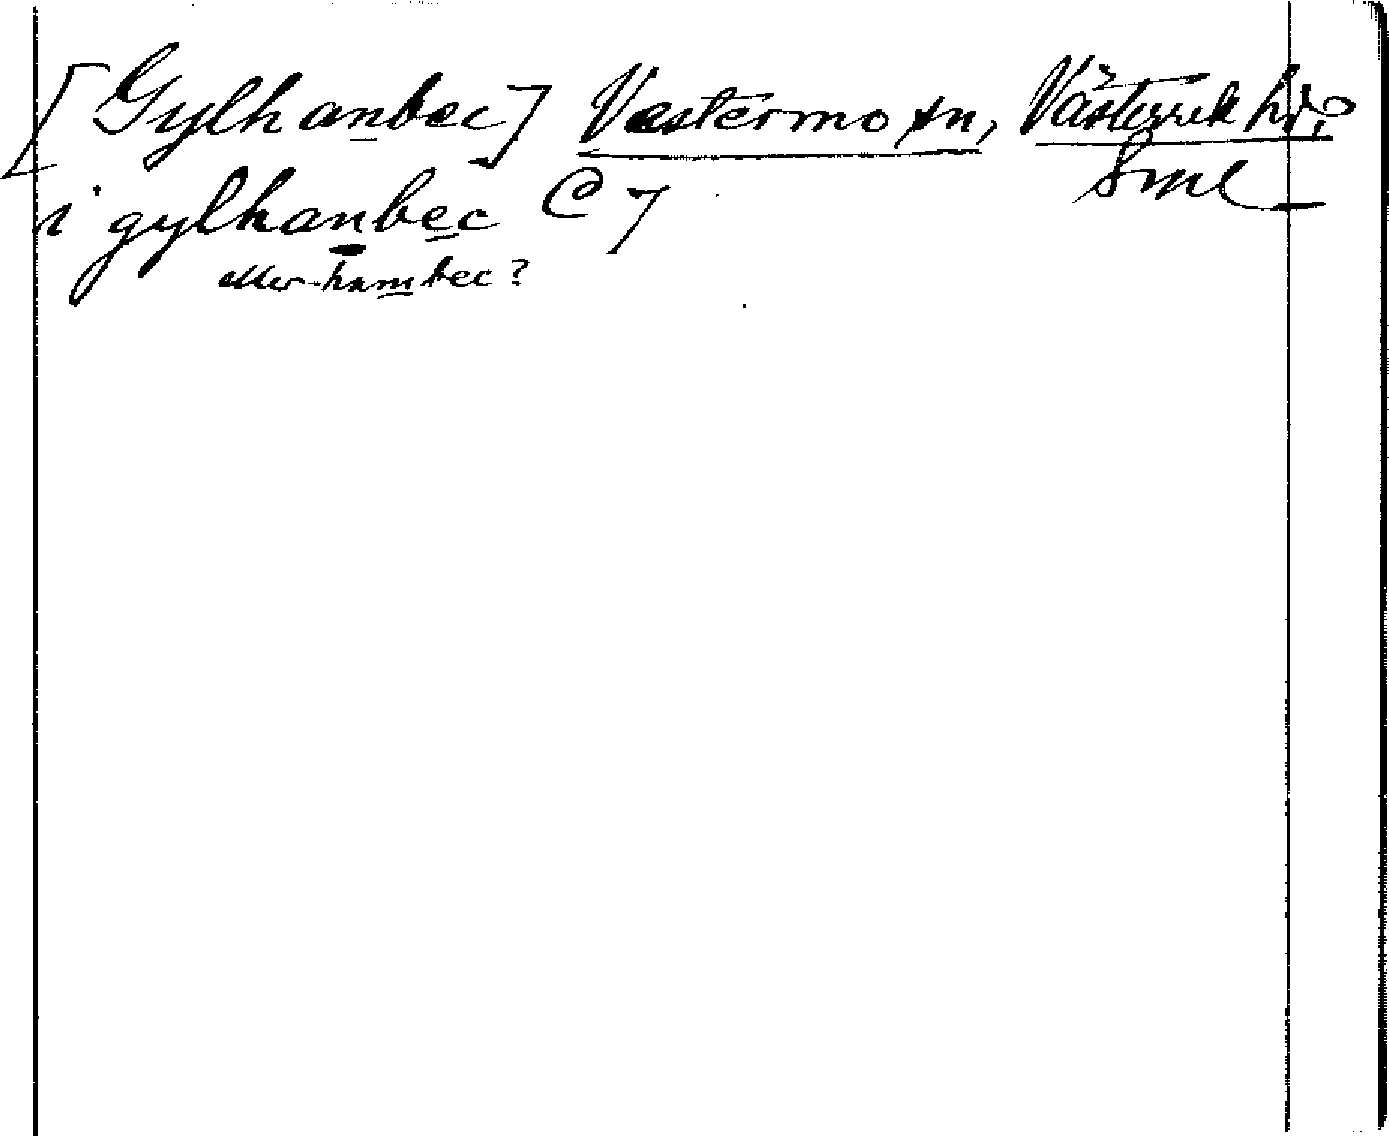 [Gylhanbec] Västermo sn, Västerrek hd?
Sml
i gylhanbec C 7
eller -hambec?